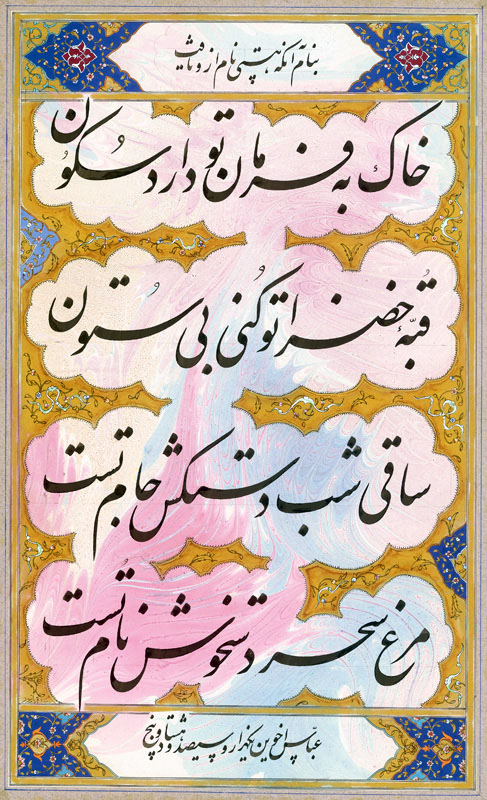 بنام آنکه هستی نام ازو یافت
خاک به فرمان تو دارد سکون
قبّهٔ خضرا تو کنی بی ستون
ساقی شب دستکش جام تست
مرغ سحر دستخوش نام تست
عباس اخوین یکهزار و سیصد و هشتاد و پنج